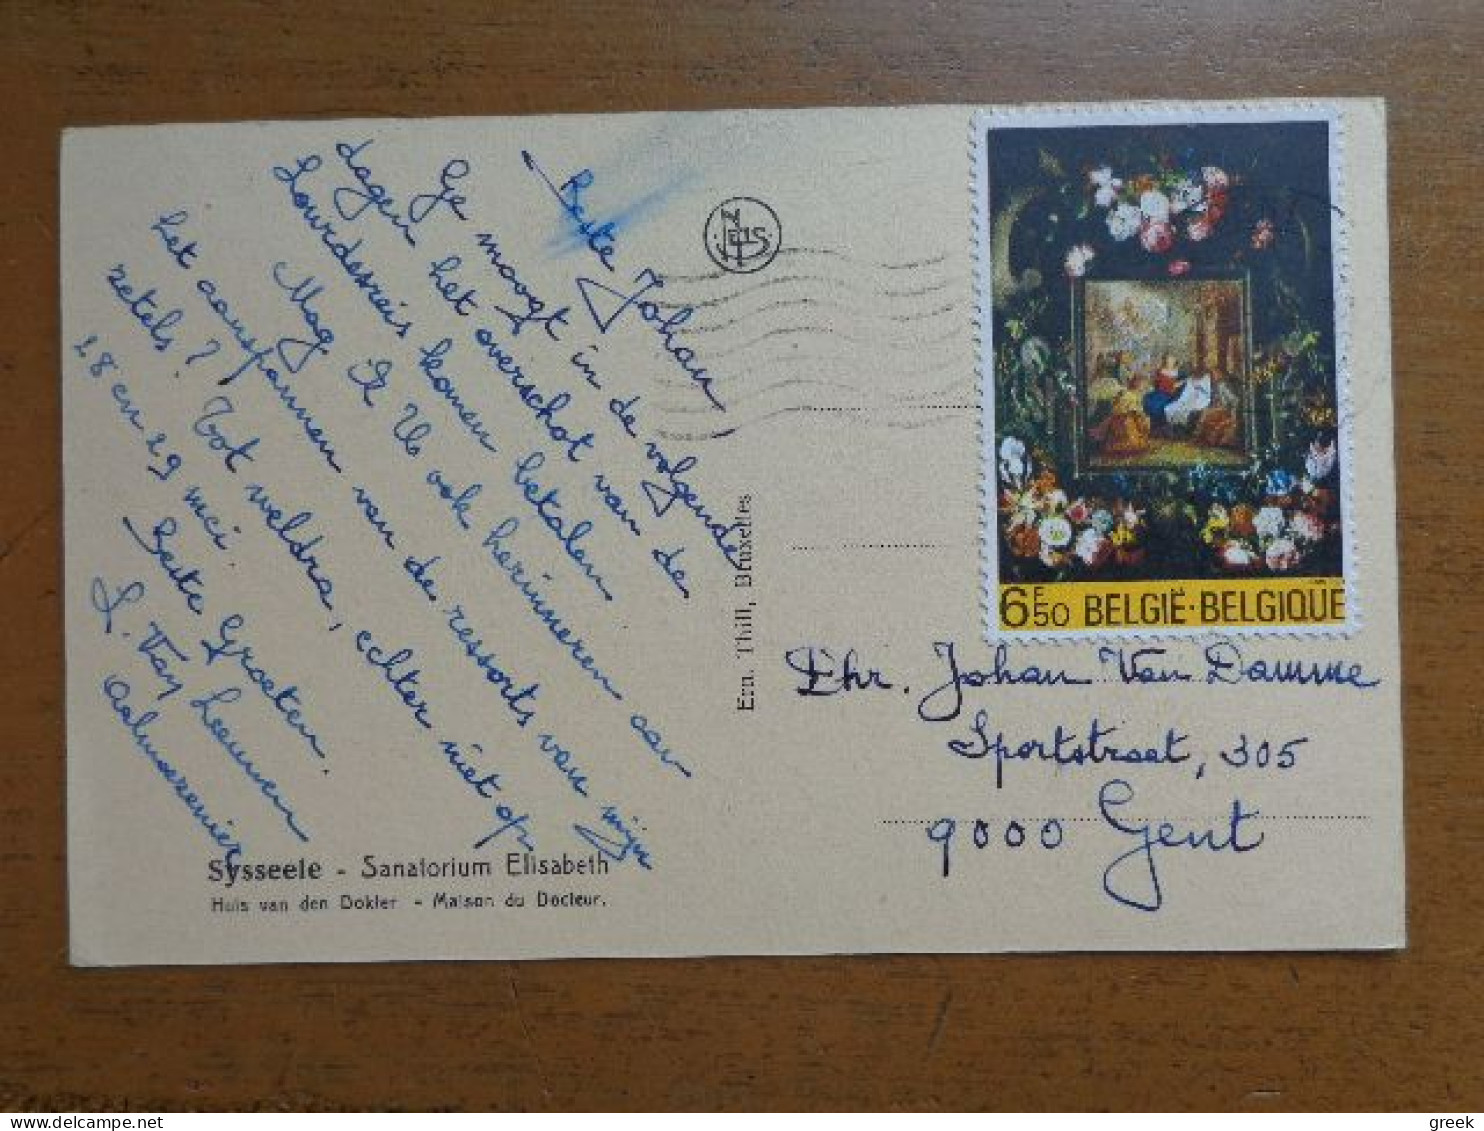 Beste Johan
Ge moogt in de volgende
dagen het overschot van de
Lourdesreis komen betalen
Mag ik U ook herinneren aan
het aanspannen van de ressorts van mijn
zetels? Tot weldra, echter niet op
28 en 29 mei.
Beste Groeten.
L. Van Leeuwen
Aalmoezenier
NELS
Ern. Thill, Bruxelles
6F50 BELGIË·BELGIQUE
Ehr. Johan Van Damme
Sportstraat, 305
9000 Gent
Sysseele - Sanatorium Elisabeth
Huis van den Dokter - Maison du Docteur.
greek